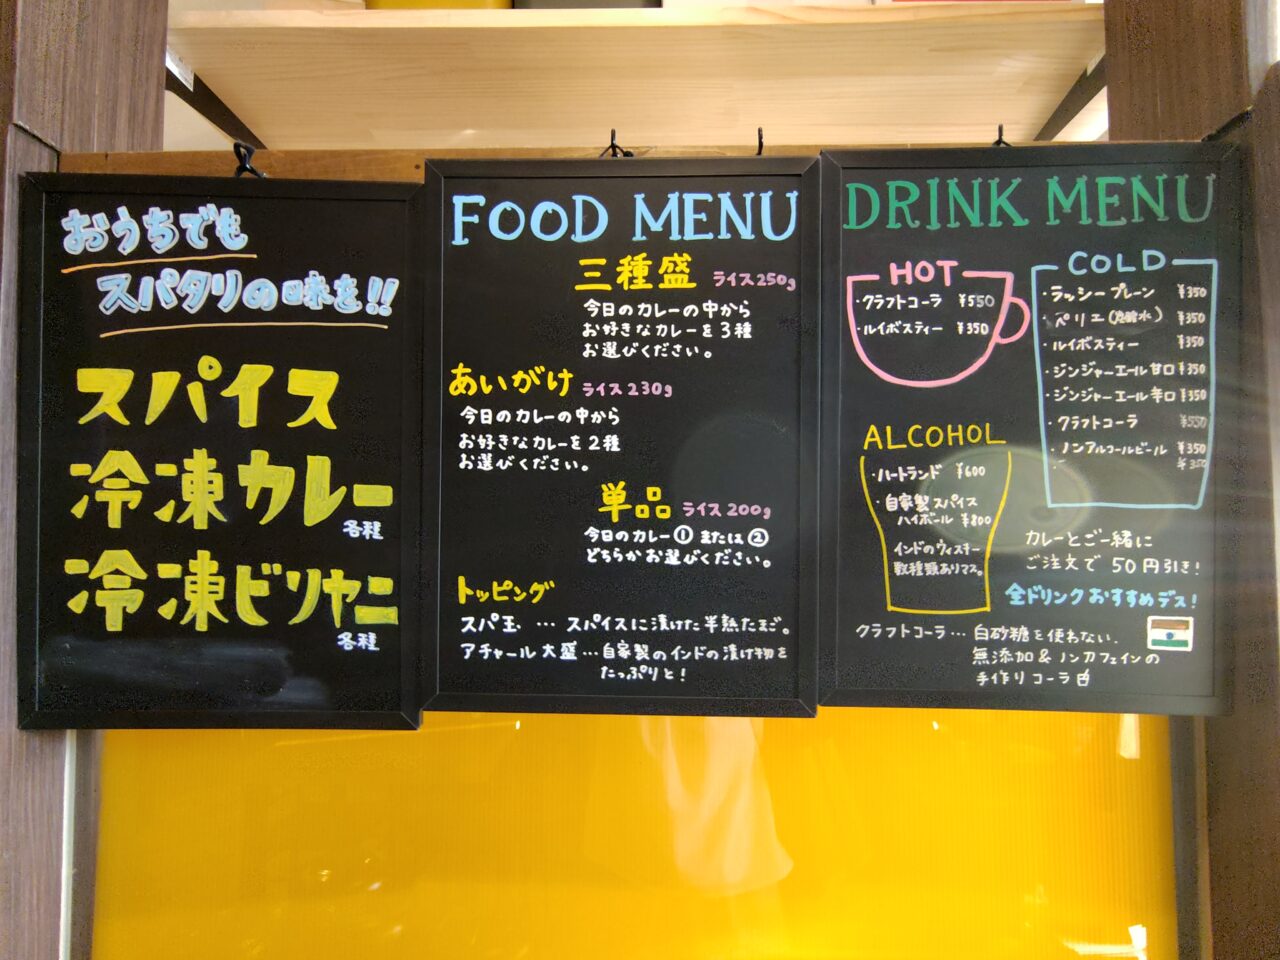 おうちでも
スパタリの味を!!
スパイス
冷凍カレー
各種
冷凍ビリヤニ
各種
FOOD MENU
三種盛 ライス250g
今日のカレーの中から
お好きなカレーを3種
お選びください。
あいがけ ライス230g
今日のカレーの中から
お好きなカレーを2種
お選びください。
単品 ライス200g
今日のカレー①または②
どちらかお選びください。
トッピング
スパ玉 … スパイスに漬けた半熟たまご。
アチャール大盛…自家製のインドの漬け物を
たっぷりと!
DRINK MENU
HOT
・クラフトコーラ ¥550
・ルイボスティー ¥350
ALCOHOL
・ハートランド ¥600
・自家製スパイス
ハイボール ¥800
インドのウィスキー
数種類ありマス。
COLD
・ラッシープレーン ¥350
・ペリエ(炭酸水) ¥350
・ルイボスティー ¥350
・ジンジャーエール甘口 ¥350
・ジンジャーエール辛口 ¥350
・クラフトコーラ ¥550
・ノンアルコールビール ¥350
¥350
カレーとご一緒に
ご注文で50円引き!
全ドリンクおすすめデス!
クラフトコーラ…白砂糖を使わない、
無添加&ノンカフェインの
手作りコーラ